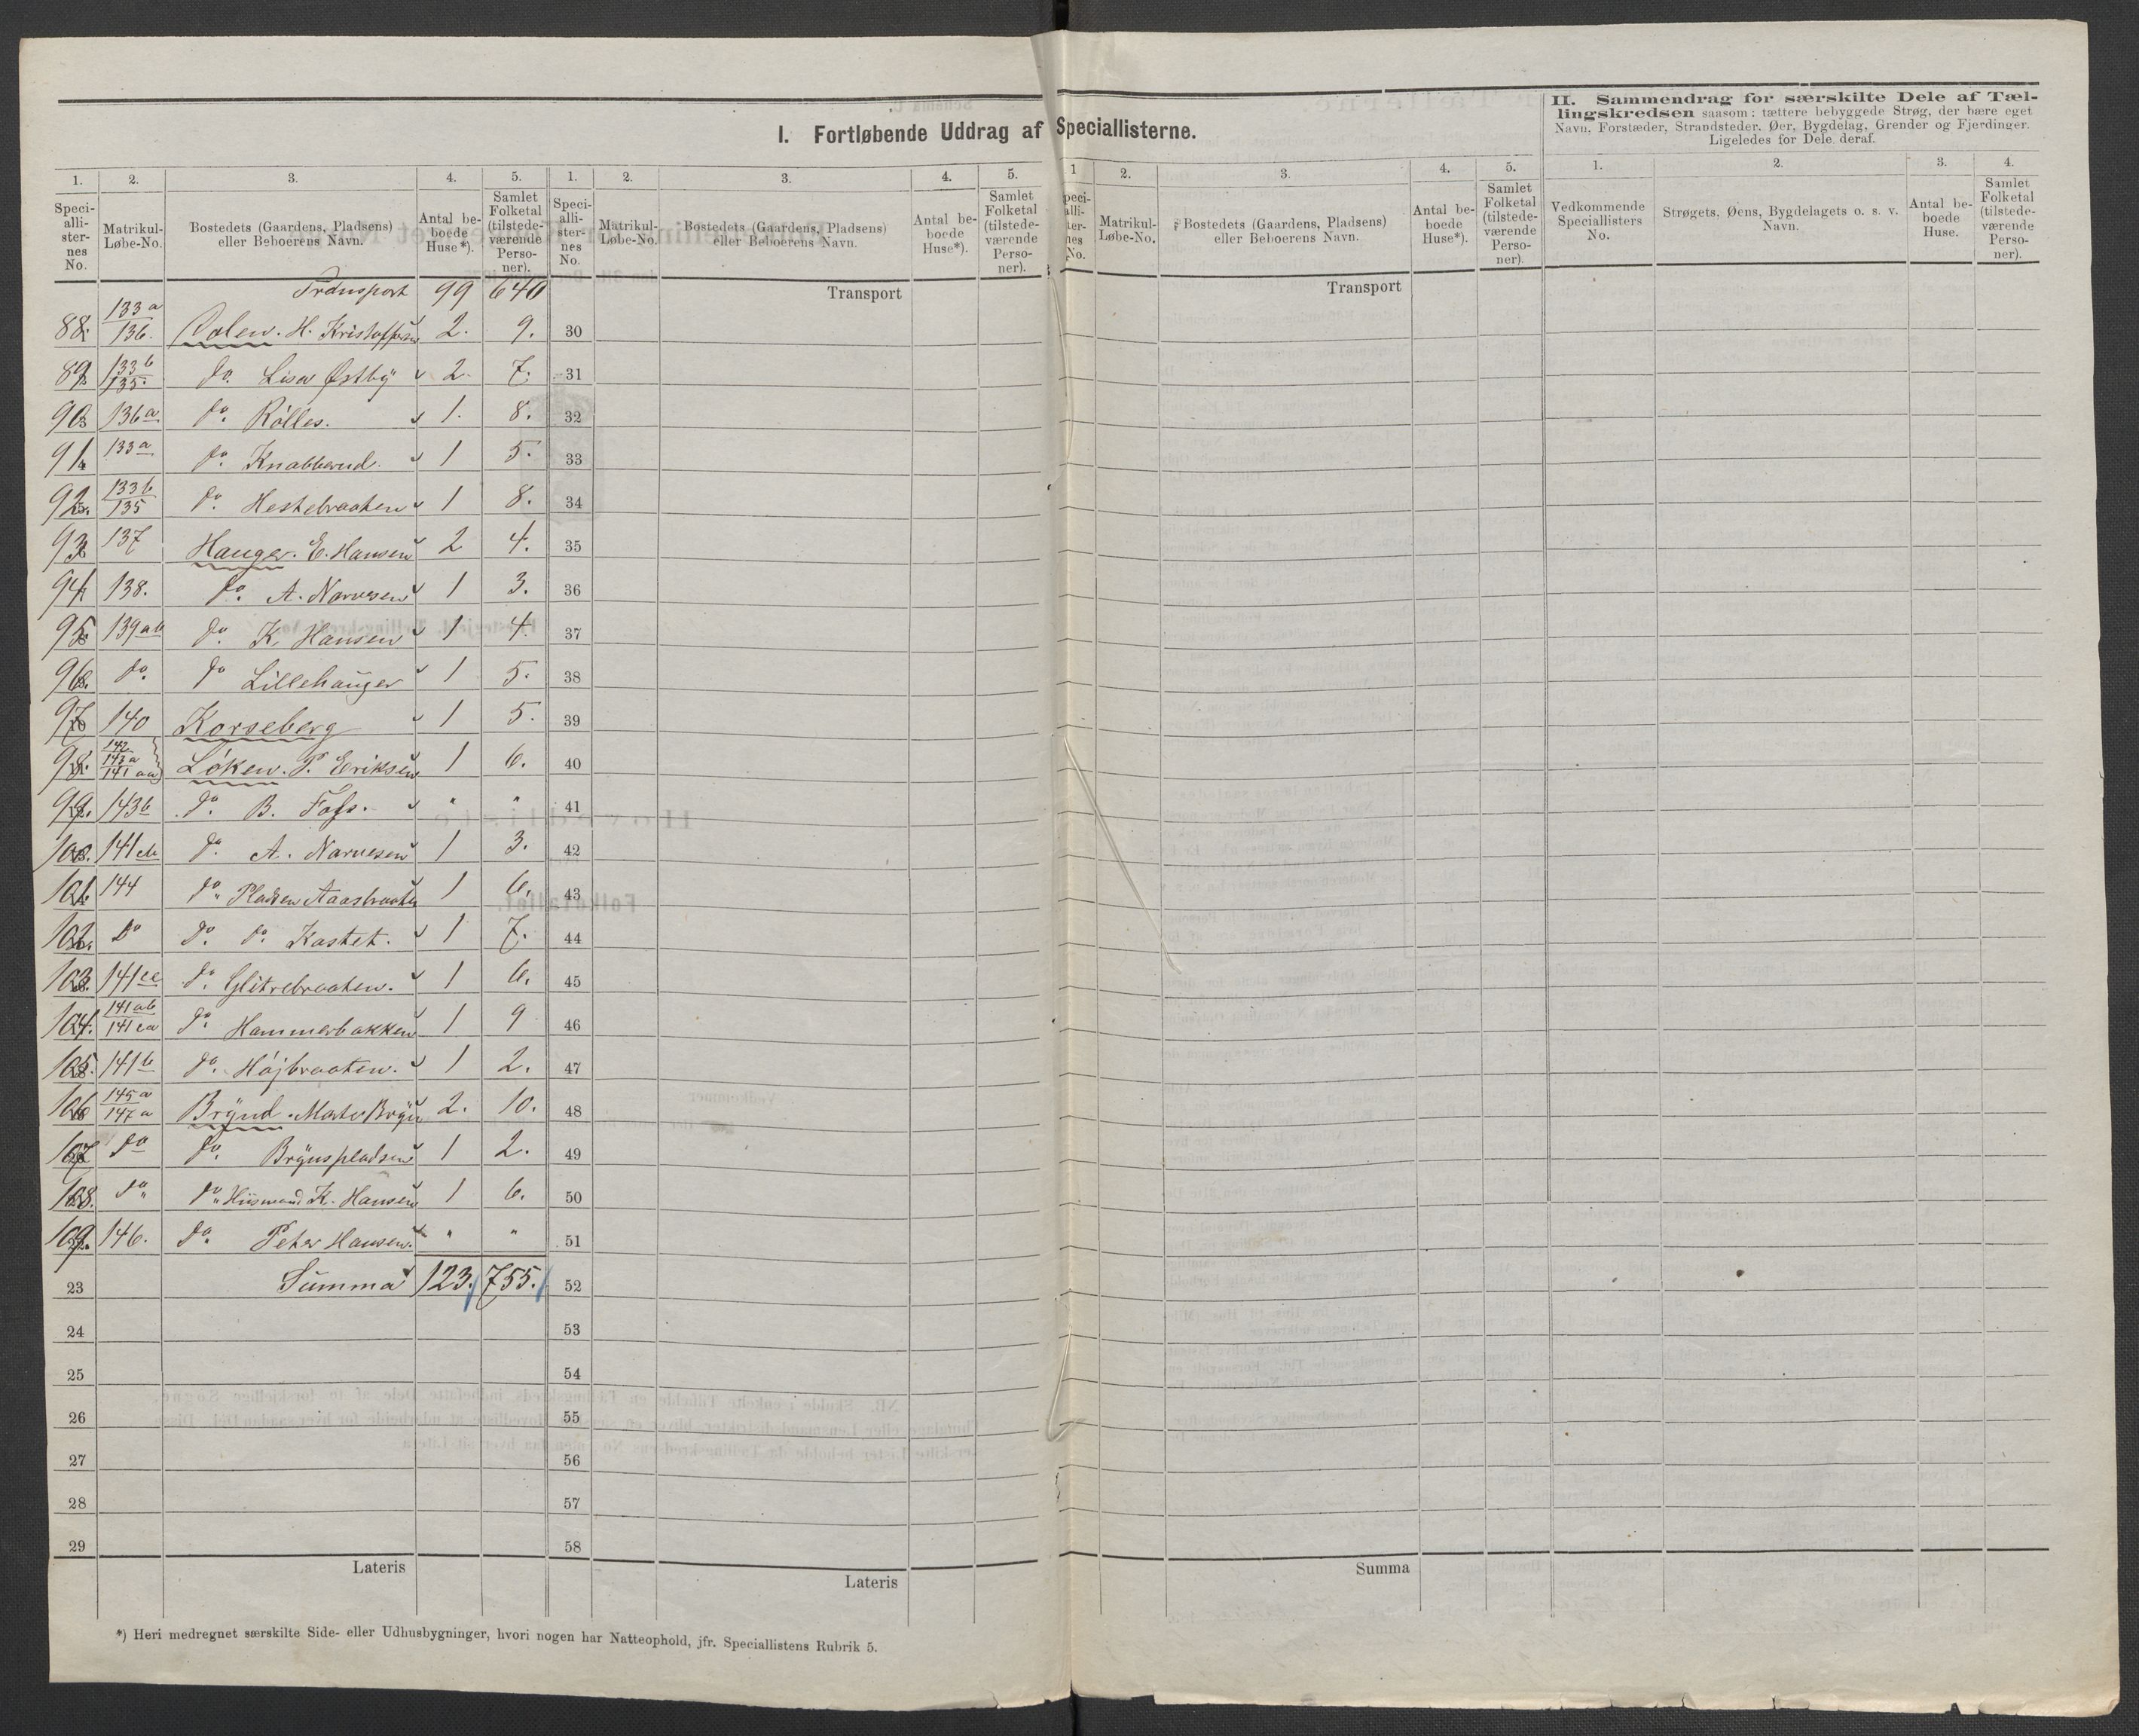 I. Fortløbende Uddrag af Speciallisterne.
1. 2. 3. 4. 5.
Speci-alli-ster-nes No. Matrikul-Løbe-No. Bostedets (Gaardens, Pladsens) eller Beboerens Navn. Antal be-boede Huse*). Samlet Folketal (tilstede-værende Perso-ner).
Transport 99 640
88. 133a/136. Dalen. H. Kristoffersen 2. 9.
89 133b/135. do. Lisa Østby 2. 7.
90 136a do. Rölles. 1. 8.
91 133a do. Knabberud. 1 5.
92 133b/135 do. Hestebraaten 1 8.
93 137 Hauger. E. Hansen 2 4.
94 138. do. A. Narvesen 1 3.
95 139ab do. K. Hansen 1 4.
96 do. do Lillehauger 1 5.
97 140 Korseberg 1 5.
98. 142 143a 141aa Löken. P. Eriksen 1 6.
99. 143b do. B. Foss. " "
100. 141cb do. A. Narvesen 1 3.
101. 144 do. Pladsen Aasbraaten 1 6.
102. Do do. do. Kastet. 1 7.
103. 141cc do. Glitrebraaten. 1 6.
104. 141ab/141ca do. Hammerbakken 1 9
105. 141b do. Höjbraaten. 1 2.
106 145a/147a Brynd. 2. 10.
107 Do do. Brynspladsen 1 2.
108. do. do. Huusmand K. Hansen 1 6.
109. 146. do. Peter Hansen. " "
23 Summa 123. 755.
24
25
26
27
28
29
Lateris
1. 2. 3. 4. 5.
Speci-alli-ster-nes No. Matrikul-Løbe-No. Bostedets (Gaardens, Pladsens) eller Beboerens Navn. Antal be-boede Huse*). Samlet Folketal (tilstede-værende Perso-ner).
Transport
30
31
32
33
34
35
36
37
38
39
40
41
42
43
44
45
46
47
48
49
50
51
52
53
54
55
56
57
58
Lateris
*) Heri medregnet særskilte Side- eller Udhusbygninger, hvori nogen har Natteophold, jfr. Speciallistens Rubrik 5.
1 2. 3. 4. 5.
Matrikul-Løbe-No. Bostedets (Gaardens, Pladsens) eller Beboerens Navn. Antal be-boede Huse*). Samlet Folketal (tilstede-værende Perso-ner).
Transport
Summa
II. Sammendrag for særskilte Dele af Tæl-
lingskredsen saasom: tættere bebyggede Strøg, der bære eget
Navn, Forstæder, Strandsteder, Øer, Bygdelag, Grender og Fjerdinger.
Ligeledes for Dele deraf.
1. 2. 3. 4.
Vedkommende Speciallisters No. Strøgets, Øens, Bygdelagets o. s. v. Navn. Antal be-boede Huse. Samlet Folketal (tilstede-værende Perso-ner).